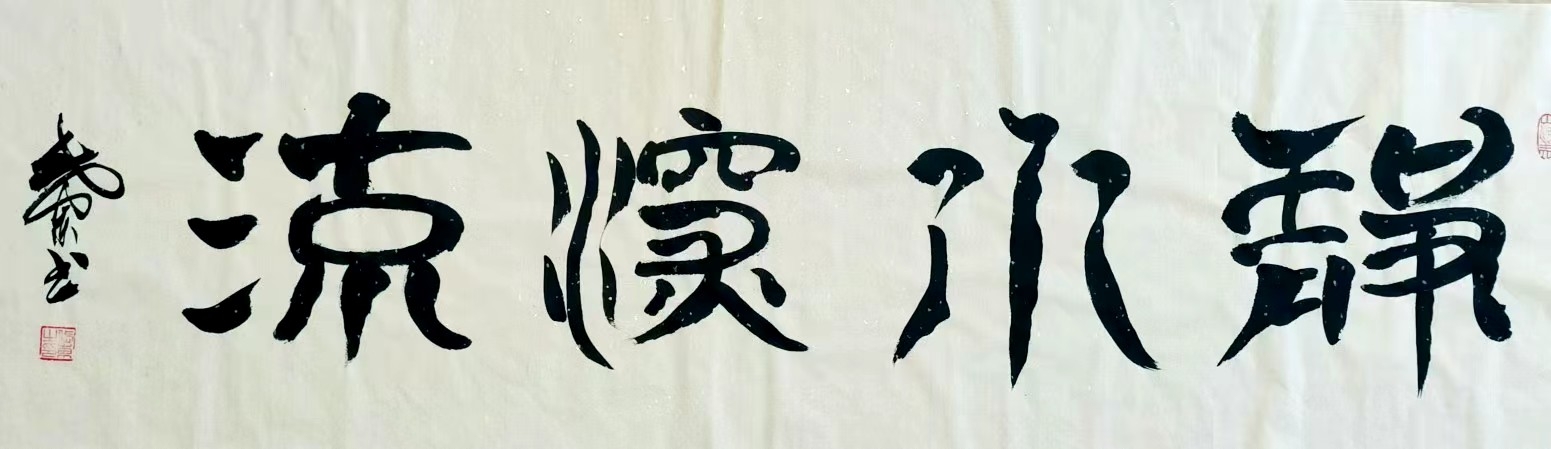 静水深流
书